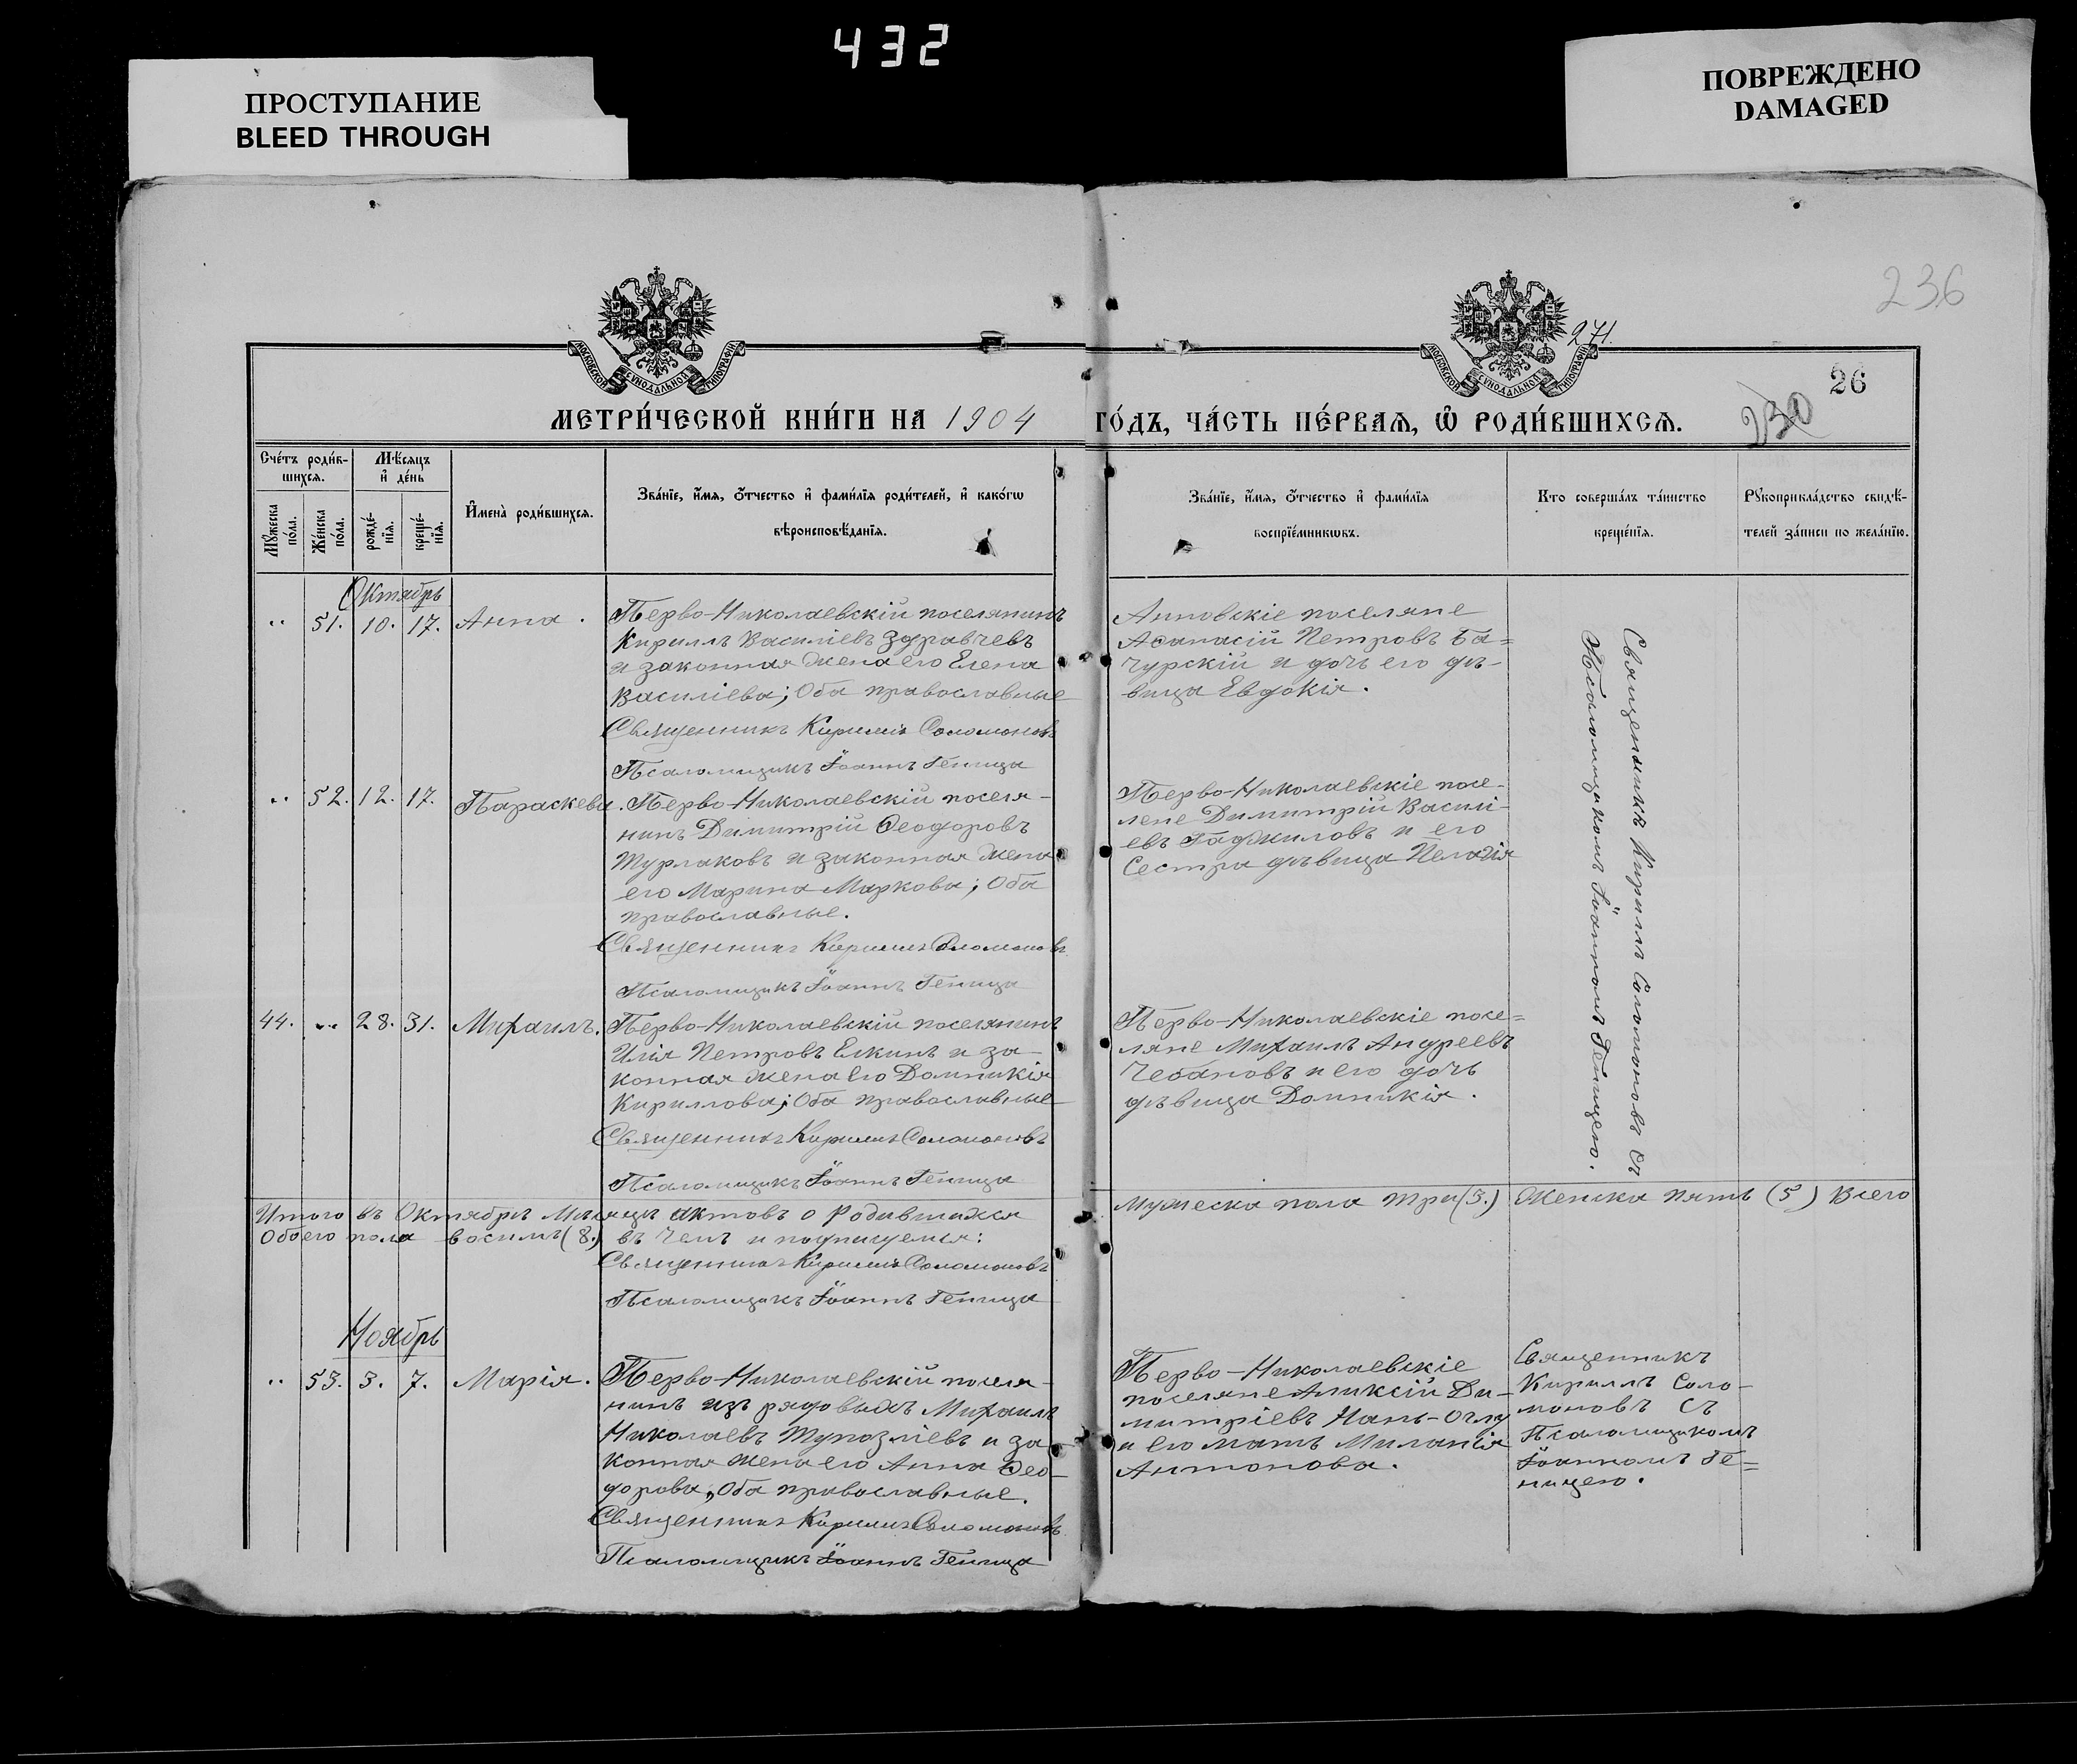 432
ПРОСТУПАНИЕ
BLEED THROUGH
ПОВРЕЖДЕНО
DAMAGED
236
271.
26
230
МОСКОВСКОЙ СѴНОДАЛЬНОЙ ТИПОГРАФІИ
МОСКОВСКОЙ СѴНОДАЛЬНОЙ ТИПОГРАФІИ
МЕТРИ́ЧЕСКОЙ КНИ́ГИ НА 1904 ГО́ДЪ, ЧА́СТЬ ПЕ́РВАѦ, Ѡ҆ РОДИ́ВШИХСѦ.
Сче́тъ роди́в-
шихсѧ.
Мѣ́сѧцъ
и҆ де́нь
Мꙋ́жеска по́ла.
Же́нска по́ла.
рожде́-
нїѧ.
креще́-
нїѧ.
И҆мена̀ роди́вшихсѧ.
Зва́нїе, и҆́мѧ, ѻ҆́тчество и҆ фами́лїѧ роди́телей, и҆ како́гѡ
вѣроисповѣ́данїѧ.
Зва́нїе, и҆́мѧ, ѻ҆́тчество и҆ фами́лїѧ
воспрїе́мникѡвъ.
Кто соверша́лъ та́инство
креще́нїѧ.
Рꙋкоприкла́дство свидѣ́-
телей за́писи по жела́нїю.
Октябрь
" 51. 10. 17. Анна.
Перво-Николаевскій поселянинъ
Кириллъ Василіевъ Здравчевъ
и законная жена его Елена
Василіева; Оба православные
Священникъ Кириллъ Соломоновъ
Псаломщикъ Іоаннъ Геница
Анновскіе поселяне
Аѳанасій Петровъ Ба=
чурскій и дочь его дѣ-
вица Евдокія.
Священникъ Кириллъ Соломоновъ съ
Псаломщикомъ Іоанномъ Геницею.
" 52. 12. 17. Параскева.
Перво-Николаевскій поселя-
нинъ Димитрій Ѳеодоровъ
Турлаковъ и законная жена
его Марина Маркова; Оба
православные.
Священникъ Кириллъ Соломоновъ
Псаломщикъ Іоаннъ Геница
Перво-Николаевскіе посе-
лене Димитрій Василі-
евъ Гаджиловъ и его
Сестра дѣвица Пелагія
44. " 28. 31. Михаилъ.
Перво-Николаевскій поселянинъ
Илія Петровъ Елкинъ и за-
конная жена его Домникія
Кириллова; Оба православные
Священникъ Кириллъ Соломоновъ
Псаломщикъ Іоаннъ Геница
Перво-Николаевскіе посе=
ляне Михаилъ Андреевъ
Чебановъ и его дочь
дѣвица Домникія.
Итого въ Октябрѣ Мѣсяцѣ актовъ о Родившихся Мужеска пола три (3.) Женска пять (5) Всего
Обоего пола восимъ (8.) въ чемъ и подписуемся:
Священникъ Кириллъ Соломоновъ
Псаломщикъ Іоаннъ Геница
Ноябрь
" 53. 3. 7. Марія.
Перво-Николаевскій поселя-
нинъ изъ рядовыхъ Михаилъ
Николаевъ Тупозліевъ и за-
конная жена его Анна Ѳео-
дорова, Оба православные.
Священникъ Кириллъ Соломоновъ
Псаломщикъ Іоаннъ Геница
Перво-Николаевскіе
поселяне Аликсій Ди-
митріевъ Нань-Оглу
и его мать Миланія
Антонова.
Священникъ
Кириллъ Соло-
моновъ съ
Псаломщикомъ
Іоанномъ Ге=
ницею.